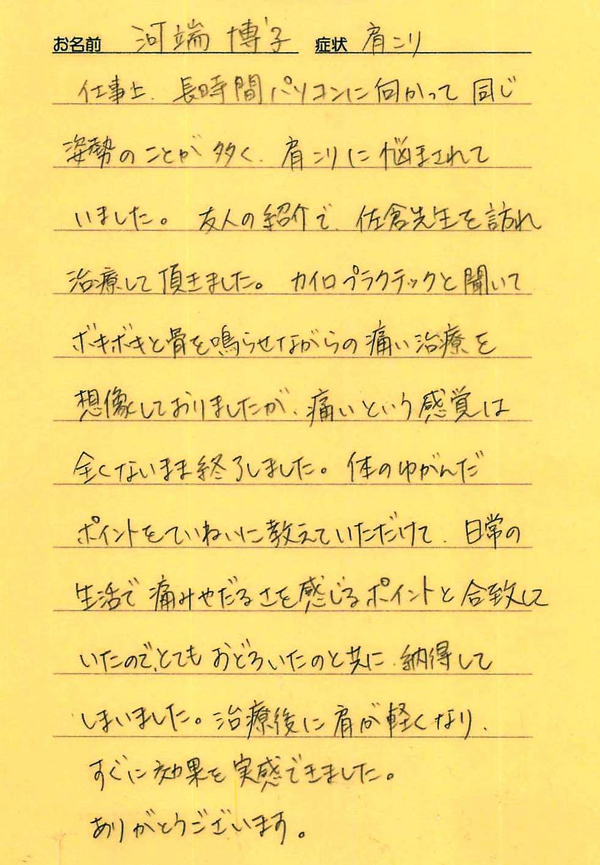 お名前 河端 博子 症状 肩こり
仕事上、長時間パソコンに向かって同じ
姿勢のことが多く、肩こりに悩まされて
いました。友人の紹介で、佐倉先生を訪れ
治療して頂きました。カイロプラクテックと聞いて
ボキボキと骨を鳴らせながらの痛い治療を
想像しておりましたが、痛いという感覚は
全くないまま終了しました。体のゆがんだ
ポイントをていねいに教えていただけて、日常の
生活で痛みやだるさを感じるポイントと合致して
いたので、とてもおどろいたのと共に、納得して
しまいました。治療後に肩が軽くなり、
すぐに効果を実感できました。
ありがとうございます。